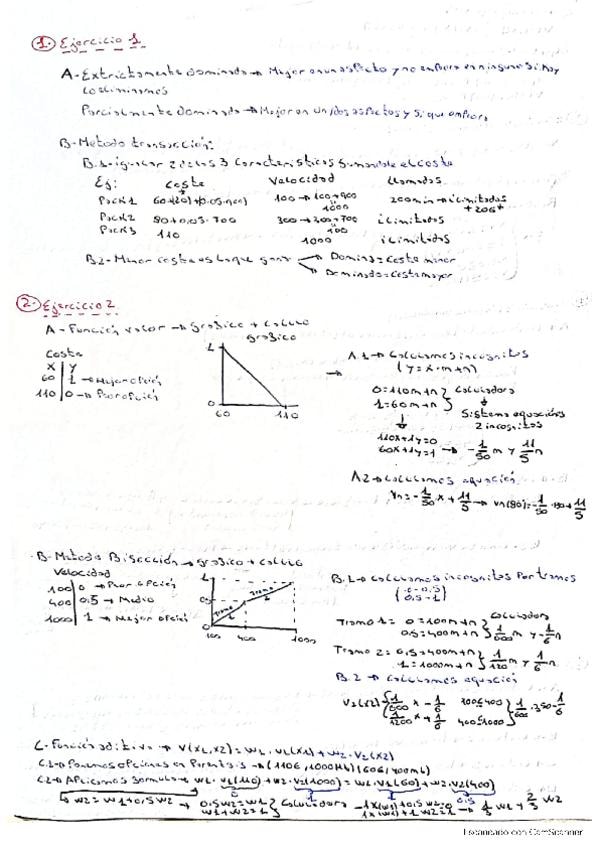 1. Ejercicio 1
A - Extrictamente dominado → Mejor en un aspecto y no empeora en ninguno si hay
lo eliminamos
Parcialmente dominado → Mejor en un/dos aspectos y si que empeora
B - Metodo transacción:
B.1 - igualar 2 de las 3 características sumandole el coste
Ej: Coste Velocidad Llamadas
Pack 1 100 → 100+900 200min → ilimitadas
1000 + 20€
Pack 2 80+0.05·700 300 → 300+700 ilimitadas
Pack 3 110 1000 ilimitadas
B.2 - Menor coste es la que gana → Domina = Coste menor
→ Dominado = Coste mayor
2. Ejercicio 2
A - Función valor → grafico + calculo
grafico
Coste
X | Y
60 | 1 → Mejor opción
110 | 0 → Peor opción
1
0
60 110
→ A.1 → Calculamos incognitas
(y = x·m+n)
0=110m+n } Calculadora
1=60m+n } ↓
Sistema equacións
2 incognitas
110x+1y=0
60x+1y=1 → -1/50 m y 11/5 n
A.2 → Calculamos equación
-1/50 x + 11/5 → -1/50·80+11/5
B - Metodo Bisección → grafico + calculo
Velocidad
100 | 0 → Peor opción
400 | 0,5 → Medio
1000 | 1 → Mejor opción
1
0,5
0
100 400 1000
B.1 → Calculamos incognitas por tramos
{ 0-0,5
{ 0,5-1
Tramo 1 = 0=100m+n } Calculadora
0,5=400m+n } 1/600 m y -1/6 n
Tramo 2 = 0,5=400m+n } 1/1200 m y 1/6 n
1=1000m+n }
B.2 → Calculamos equación
V2(x2) { 1/600 x - 1/6 100≤400 } 1/600·350-1/6
{ 1/1200 x + 1/6 400≤1000 }
C - Función aditiva → V(x1,x2) = w1·v1(x1)+w2·v2(x2)
C.1 → Ponemos opciones en parentesis → (110€, 1000Mb) (60€, 400Mb)
C.2 → Aplicamos formula → w1·v1(110)+w2·v2(1000) = w1·v1(60)+w2·v2(400)
0 1 1 0,5
→ w2 = w1+0,5w2 → 0,5w2=w1 } Calculadora -1x(w1)+0,5w2=0
w1+w2=1 } 1x(w1)+1w2=1 → 1/3 w1 y 2/3 w2
Escaneado con CamScanner